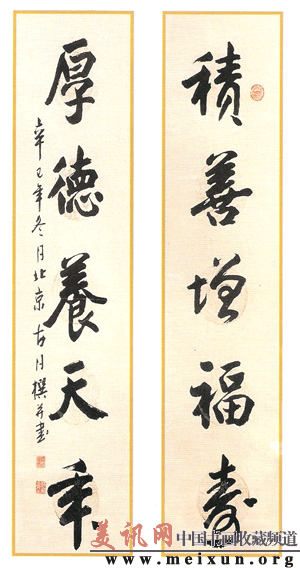 積善增福寿
厚德養天年
辛巳年冬月北京古月撰并書
美讯网
中国书画收藏频道
www.meixun.org